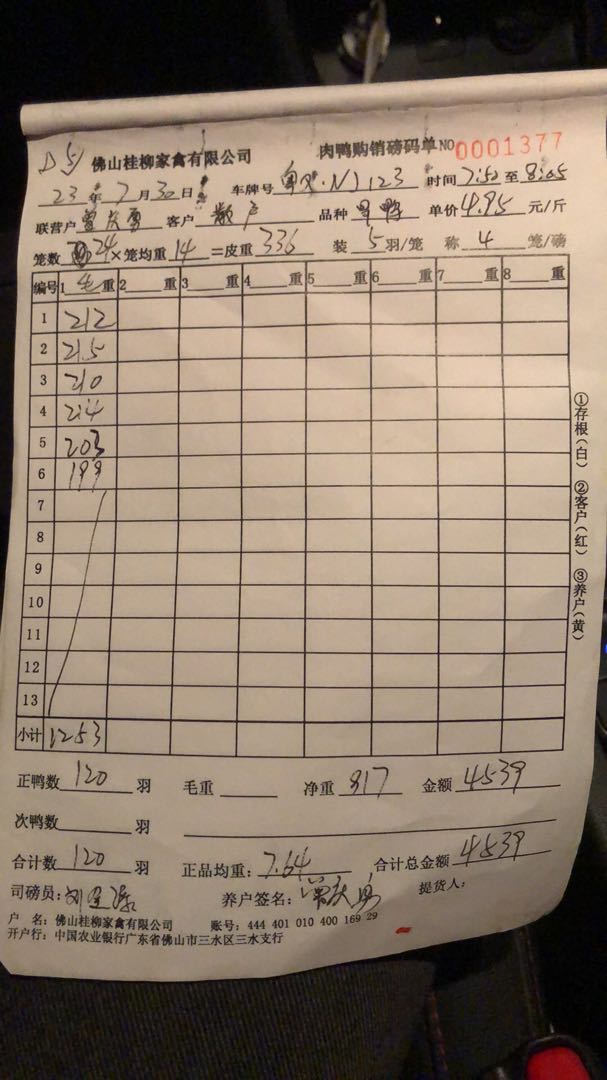 D5 佛山桂柳家禽有限公司 肉鸭购销磅码单 NO 0001377
23年7月30日 车牌号 N1123 时间7:50至8:05
联营户 客户 散户 品种 单价4.95元/斤
笼数24×笼均重14=皮重336 装5羽/笼 称4笼/磅
编号 1毛重 2重 3重 4重 5重 6重 7重 8重
1 212
2 215
3 210
4 214
5 203
6 199
7
8
9
10
11
12
13
小计 1253
①存根(白) ②客户(红) ③养户(黄)
正鸭数120羽 毛重 净重917 金额4539
次鸭数 羽
合计数120羽 正品均重:7.64 合计总金额4539
司磅员: 养户签名: 提货人:
户 名:佛山桂柳家禽有限公司 账号:444 401 010 400 169 29
开户行:中国农业银行广东省佛山市三水区三水支行